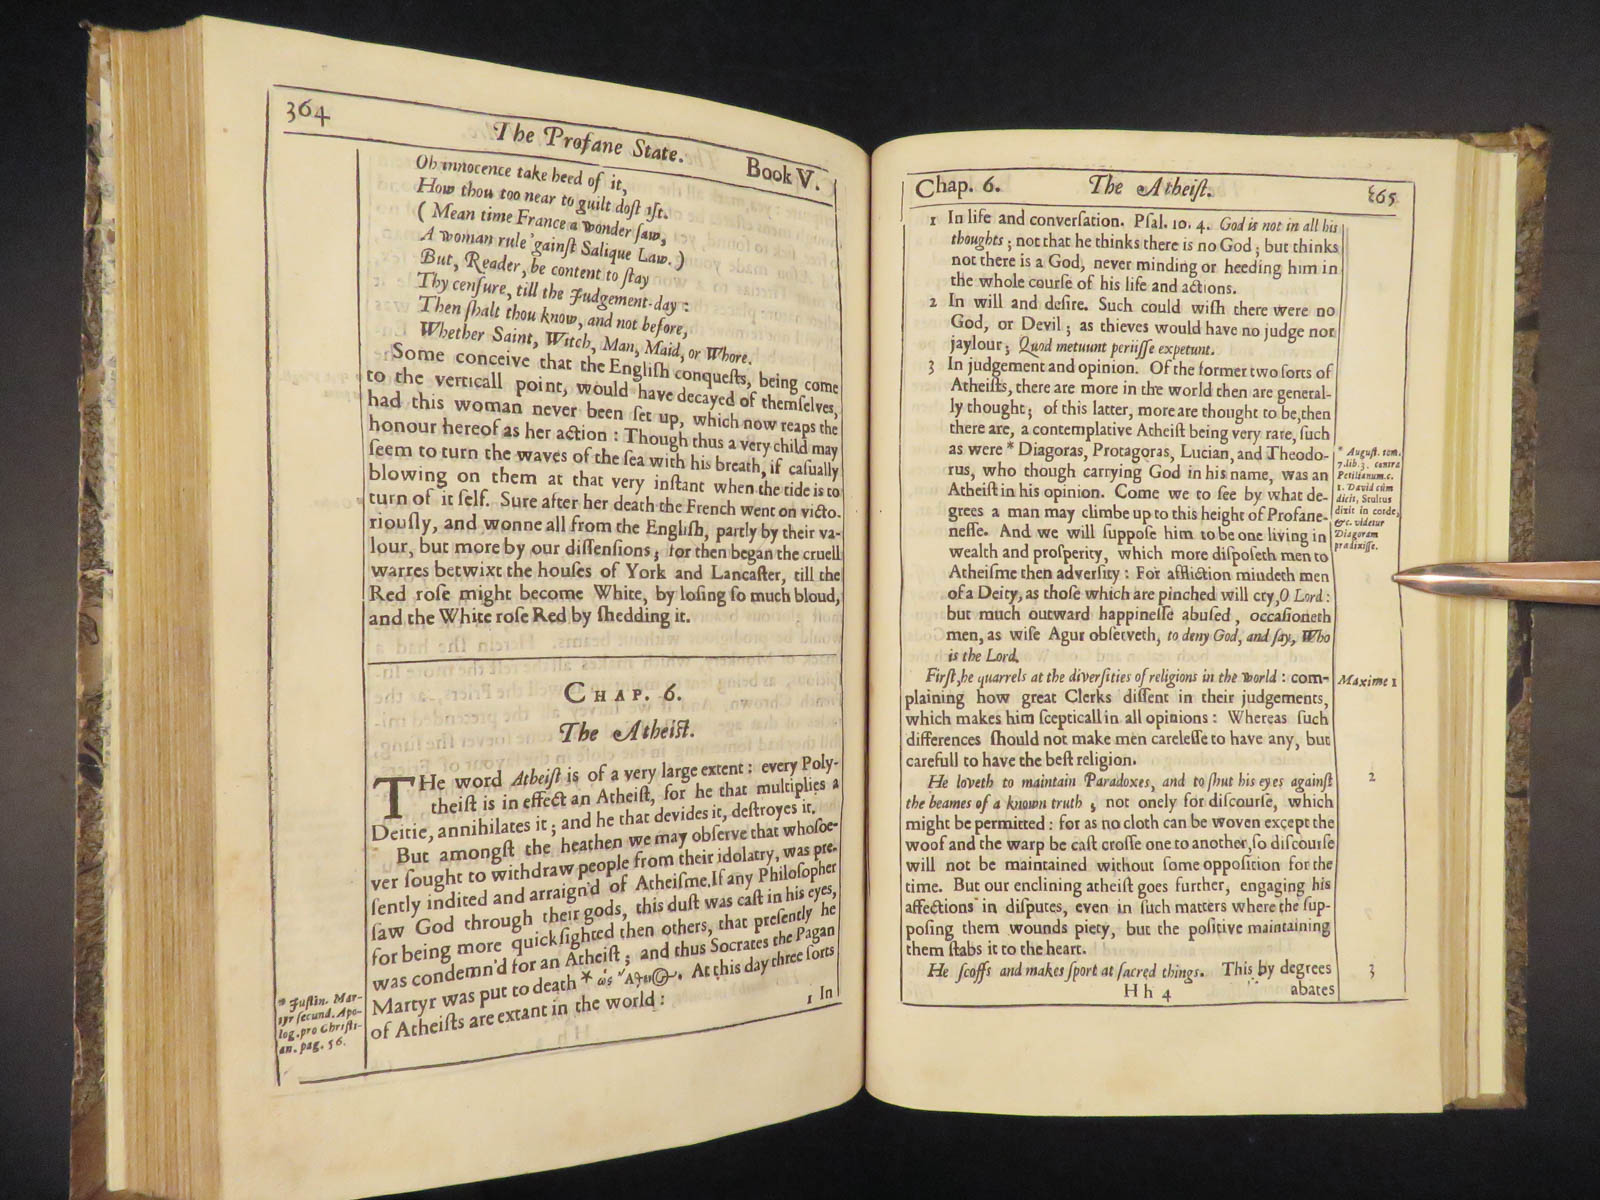 364
The Profane State.
Book V.
Oh innocence take heed of it,
How thou too near to guilt doſt ſit.
( Mean time France a wonder ſaw,
A woman rule 'gainſt Salique Law. )
But, Reader, be content to ſtay
Thy cenſure, till the Judgement-day :
Then ſhalt thou know, and not before,
Whether Saint, Witch, Man, Maid, or Whore.
Some conceive that the Engliſh conqueſts, being come
to the verticall point, would have decayed of themſelves,
had this woman never been ſet up, which now reaps the
honour hereof as her action : Though thus a very child may
ſeem to turn the waves of the ſea with his breath, if caſually
blowing on them at that very inſtant when the tide is to
turn of it ſelf. Sure after her death the French went on victo-
riouſly, and wonne all from the Engliſh, partly by their va-
lour, but more by our diſſenſions ; for then began the cruell
warres betwixt the houſes of York and Lancaſter, till the
Red roſe might become White, by loſing ſo much bloud,
and the White roſe Red by ſhedding it.
CHAP. 6.
The Atheiſt.
THe word Atheiſt is of a very large extent : every Poly-
theiſt is in effect an Atheiſt, for he that multiplies a
Deitie, annihilates it ; and he that devides it, deſtroyes it.
But amongſt the heathen we may obſerve that whoſoe-
ver ſought to withdraw people from their idolatry, was pre-
ſently indited and arraign'd of Atheiſme. If any Philoſopher
ſaw God through their gods, this duſt was caſt in his eyes,
for being more quickſighted then others, that preſently he
was condemn'd for an Atheiſt ; and thus Socrates the Pagan
Martyr was put to death * ὡς . At this day three ſorts
of Atheiſts are extant in the world :
1 In
* Juſtin. Mar-
tyr ſecund. Apo-
log. pro Chriſti-
an. pag. 56.
Chap. 6.
The Atheiſt.
365
1 In life and converſation. Pſal. 10. 4. God is not in all his
thoughts ; not that he thinks there is no God ; but thinks
not there is a God, never minding or heeding him in
the whole courſe of his life and actions.
2 In will and deſire. Such could wiſh there were no
God, or Devil ; as thieves would have no judge nor
jaylour ; Quod metuunt periiſſe expetunt.
3 In judgement and opinion. Of the former two ſorts of
Atheiſts, there are more in the world then are general-
ly thought ; of this latter, more are thought to be, then
there are, a contemplative Atheiſt being very rare, ſuch
as were * Diagoras, Protagoras, Lucian, and Theodo-
rus, who though carrying God in his name, was an
Atheiſt in his opinion. Come we to ſee by what de-
grees a man may climbe up to this height of Profane-
neſſe. And we will ſuppoſe him to be one living in
wealth and proſperity, which more diſpoſeth men to
Atheiſme then adverſity : For affliction mindeth men
of a Deity, as thoſe which are pinched will cry, O Lord :
but much outward happineſſe abuſed, occaſioneth
men, as wiſe Agur obſerveth, to deny God, and ſay, Who
is the Lord.
* Auguſt. tom.
7. lib. 3. contra
Petilianum. c.
1. David cùm
dicit, Stultus
dixit in corde,
&c. videtur
Diagoram
prædixiſſe.
Firſt, he quarrels at the diverſities of religions in the world : com-
plaining how great Clerks diſſent in their judgements,
which makes him ſcepticall in all opinions : Whereas ſuch
differences ſhould not make men careleſſe to have any, but
carefull to have the beſt religion.
Maxime 1
He loveth to maintain Paradoxes, and to ſhut his eyes againſt
the beames of a known truth ; not onely for diſcourſe, which
might be permitted : for as no cloth can be woven except the
woof and the warp be caſt croſſe one to another, ſo diſcourſe
will not be maintained without ſome oppoſition for the
time. But our enclining atheiſt goes further, engaging his
affections in diſputes, even in ſuch matters where the ſup-
poſing them wounds piety, but the poſitive maintaining
them ſtabs it to the heart.
2
He ſcoffs and makes ſport at ſacred things. This by degrees
3
H h 4
abates